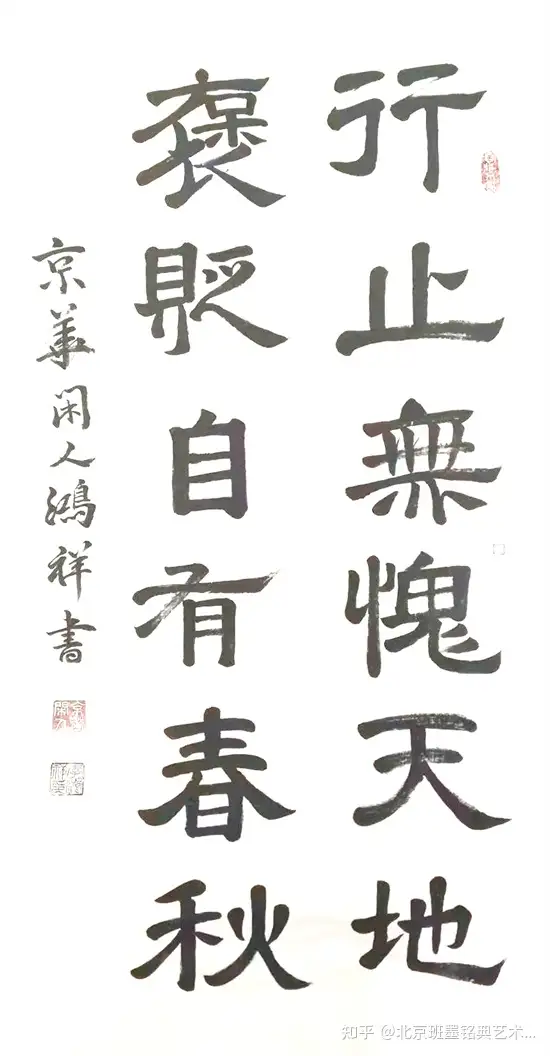 行止無愧天地
褒貶自有春秋
京華閑人鴻祥書
知乎 @北京班墨铭典艺术...